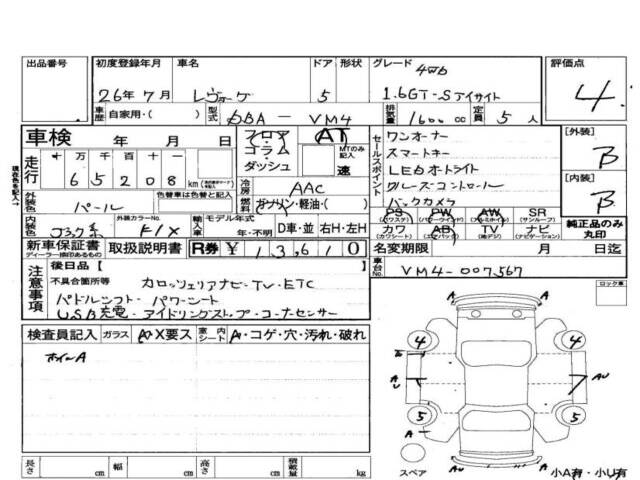 出品番号
初度登録年月 車名 ドア 形状 グレード 評価点
26年7月 レヴォーグ 5 4WD 1.6GT-Sアイサイト 4
車歴 自家用・( ) 型式 DBA-VM4 排気量 1600cc 定員 5人
車検 年 月 日
フロア コラム ダッシュ AT MTのみ記入 速
セールスポイント
ワンオーナー
スマートキー
LEDオートライト
クルーズコントロール
バックカメラ
[外装] B
[内装] B
走行 十 万 千 百 十
65208 km
冷房 AAC
燃料 ガソリン・軽油・( )
外装色 パール
色替車は色替と記入
内装色 外装カラーNo. K1X
輸入車 モデル年式 年・不明 D車・並 右H・左H
PS (パワステ) PW (パワーウインド) AW (アルミホイル) SR (サンルーフ)
カワ (カワシート) AB (エアバック) TV (地デジ) ナビ (ナビゲーション)
純正品のみ丸印
新車保証書 ディーラー捺印あるもの 取扱説明書 R券 ¥ 13,610
名変期限 月 日迄
車台No. VM4-007567
注意事項
後日品[ ]
不具合箇所等 カロッツェリアナビ・TV・ETC
パドルシフト・パワーシート
USB充電・アイドリングストップ・コーナーセンサー
ロック車
検査員記入 ガラス A・X要ス 室内シート A・コゲ・穴・汚れ・破れ
ホイールA
A
4 4
A AU
U
5 5
スペア AU A
小A有・小U有
長さ cm 幅 cm 高さ cm 積載量 kg
現在色を記入→